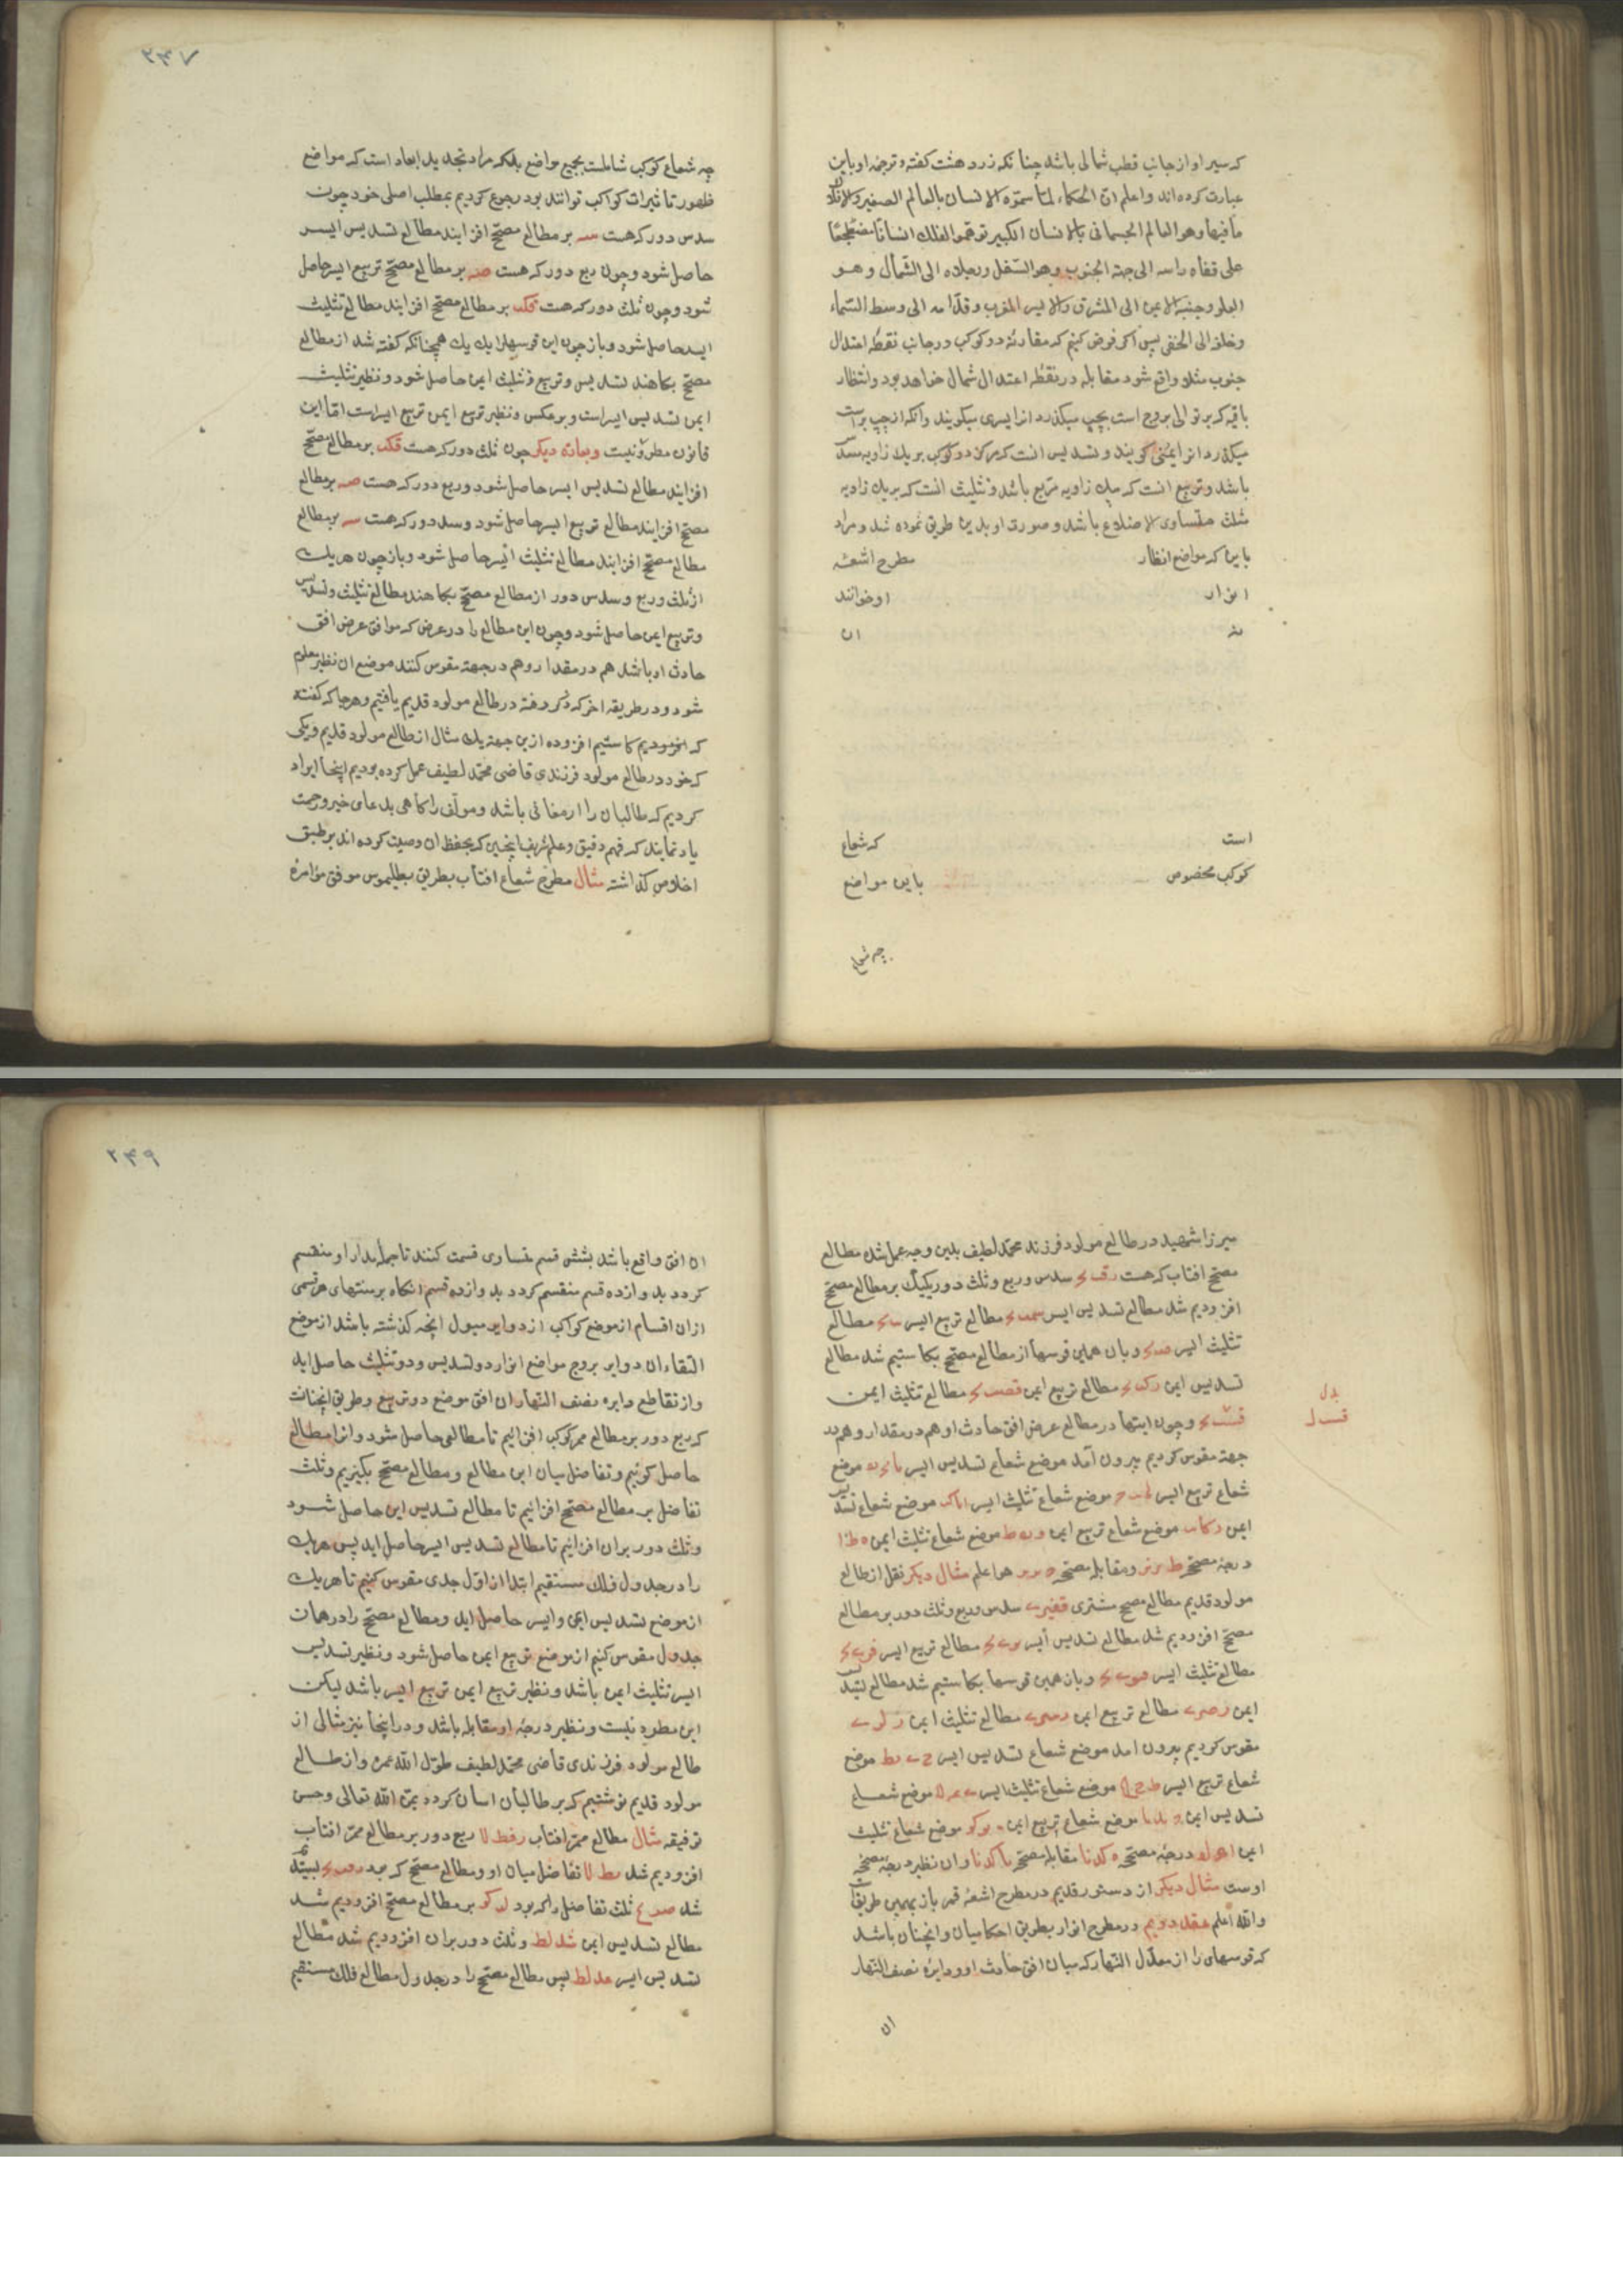 که سیر او از جانب قطب شمالی باشد چنانکه زردهشت کفته و ترجمه او باین
عبارت کرده اند و اعلم ان الحکماء لما سموه الانسان بالعالم الصغیر والافلاک
مافیها وهو العالم الجسمانی بالانسان الکبیر توهموا الفلک انسانا مضطجعا
علی قفاه راسه الی جهة الجنوب وهو السفل ورجلاه الی الشمال وهو
العلو وجنبه الایمن الی المشرق والایسر المغرب وقدامه الی وسط السماء
وخلفه الی الخفی پس اکر فرض کنیم که مقارنه دو کوکب در جانب نقطه اعتدال
جنوب مثلا واقع شود مقابله در نقطه اعتدال شمال خواهد بود وانتظار
باقیه که بر توالی بروج است بچپ میکذرد انرا یسری میکویند وانکه از چپ براست
میکذرد انرا یمنی کویند و تسدیس انست که مرکز دو کوکب بر یک زاویه مسدس
باشد و تربیع انست که بیک زاویه مربع باشد و تثلیث انست که بر یک زاویه
مثلث متساوی الاضلاع باشد و صورت او بدین طریق نموده شد و مراد
باین که مواضع انظار مطرح اشعه
انوار او خوانند
نه ان
است که شعاع
کوکب مخصوص باین مواضع
چه شعاع
۲۴۷
چه شعاع کوکب شاملست بجمیع مواضع بلکه مراد تجدید ابعاد است که مواضع
ظهور تاثیرات کواکب توانند بود رجوع کردیم بمطلب اصلی خود چون
سدس دور که هست سه بر مطالع مصحح افزایند مطالع تسدیس ایسر
حاصل شود و چون ربع دور که هست صه بر مطالع مصحح تربیع ایسر حاصل
شود و چون ثلث دور که هست قک بر مطالع مصحح افزایند مطالع تثلیث
ایسر حاصل شود و باز چون این قوسها را یک یک همچنانکه کفته شد از مطالع
مصحح بکاهند تسدیس و تربیع و تثلیث ایمن حاصل شود و نظیر تثلیث
ایمن تسدیس ایسر است و بر عکس و نظیر تربیع ایمن تربیع ایسر است اما این
قانون مطرد نیست وبعبارة دیکر چون ثلث دور که هست قک بر مطالع مصحح
افزایند مطالع تسدیس ایسر حاصل شود و ربع دور که هست صه بر مطالع
مصحح افزایند مطالع تربیع ایسر حاصل شود و سدس دور که هست سه بر مطالع
مطالع مصحح افزایند مطالع تثلیث ایسر حاصل شود و باز چون هر یک
از ثلث و ربع و سدس دور از مطالع مصحح بکاهند مطالع تثلیث و تسدیس
و تربیع ایمن حاصل شود و چون این مطالع را در عرض که موافق عرض افق
حادث او باشد هم در مقدار و هم در جهة مقوس کنند موضع ان نظیر معلوم
شود و در طریقه اخر که ذکر رفته در طالع مولود قدیم یافتیم و هر جا که کفته
که افزودیم کاستیم افزوده ازین جهة یک مثال از طالع مولود قدیم و یکی
که خود در طالع مولود فرزندی قاضی محمد لطیف عمل کرده بودیم اینجا ایراد
کردیم که طالبان را ارمغانی باشد و مولف را کاهی بدعای خیر و رحمت
یاد نمایند که فهم دقیق و علم شریف اینچنین که بحفظ ان وصیت کرده اند بر طبق
اخلاص کذاشته مثال مطرح شعاع افتاب بطریق بطلیموس موافق مؤامره
میرزا شهید در طالع مولود فرزند محمد لطیف بدین وجه عمل شد مطالع
مصحح افتاب که هست سدس و ربع و ثلث دور یکیک بر مطالع مصحح
افزودیم شد مطالع تسدیس ایسر مطالع تربیع ایسر مطالع
تثلیث ایسر و باز همین قوسها از مطالع مصحح بکاستیم شد مطالع
تسدیس ایمن مطالع تربیع ایمن مطالع تثلیث ایمن
و چون اینها در مطالع عرض افق حادث او هم در مقدار و هم در
جهة مقوس کردیم بیرون آمد موضع شعاع تسدیس ایسر موضع
شعاع تربیع ایسر موضع شعاع تثلیث ایسر موضع شعاع تسدیس
ایمن موضع شعاع تربیع ایمن موضع شعاع تثلیث ایمن
درجه مصحح و مقابله مصححه هو اعلم مثال دیکر نقل از طالع
مولود قدیم مطالع مصحح مشتری سدس و ربع و ثلث دور بر مطالع
مصحح افزودیم شد مطالع تسدیس ایسر مطالع تربیع ایسر
مطالع تثلیث ایسر و باز همین قوسها بکاستیم شد مطالع تسدیس
ایمن مطالع تربیع ایمن مطالع تثلیث ایمن
مقوس کردیم بیرون امد موضع شعاع تسدیس ایسر موضع
شعاع تربیع ایسر موضع شعاع تثلیث ایسر موضع شعاع
تسدیس ایمن موضع شعاع تربیع ایمن موضع شعاع تثلیث
ایمن درجه مصححه مقابله مصححه وان نظیر درجه مصححه
اوست مثال دیکر از دستور قدیم در مطرح اشعه قمر باز بهمین طریقست
والله اعلم عقد دویم در مطرح انوار بطریق احکامیان وانچنان باشد
که قوسهای را از معدل النهار که میان افق حادث او و دایره نصف النهار
ان
بدل
۲۴۹
ان افق واقع باشد بشش قسم متساوی قسمت کنند تا جمله مدار او منقسم
کردد بدوازده قسم منقسم کردد بدوازده قسم انکاه بر منتهای هر قسمی
ازان اقسام از موضع کواکب از دوایر میول انچه کذشته باشد از موضع
التقاء ان دوایر بروج مواضع انوار دو تسدیس و دو تثلیث حاصل اید
و از تقاطع دایره نصف النهار ان افق موضع دو تربیع و طریق انچنانست
که ربع دور بر مطالع ممر کوکب افزائیم تا مطالعی حاصل شود وانرا مطالع
حاصل کوئیم و تفاضل میان این مطالع و مطالع مصحح بکیریم و ثلث
تفاضل بر مطالع مصحح افزائیم تا مطالع تسدیس ایمن حاصل شود
و ثلث دور بران افزائیم تا مطالع تسدیس ایسر حاصل اید پس هر یک
را در جدول فلک مستقیم ابتدا از اول جدی مقوس کنیم تا هر یک
از موضع تسدیس ایمن و ایسر حاصل اید و مطالع مصحح را در همان
جدول مقوس کنیم از موضع تربیع ایمن حاصل شود و نظیر تسدیس
ایسر تثلیث ایمن باشد و نظیر تربیع ایمن تربیع ایسر باشد لیکن
این مطرد نیست و نظیر درجه او مقابله باشد و در اینجا نیز مثالی از
طالع مولود فرزندی قاضی محمد لطیف طول الله عمره و از طالع
مولود قدیم نوشتیم که بر طالبان اسان کردد بمن الله تعالی وحسن
توفیقه مثال مطالع ممر افتاب رفط لا ربع دور بر مطالع ممر افتاب
افزودیم شد مط لا تفاضل میان او و مطالع مصحح که بود بستدیم
شد ثلث تفاضل را که بود لد کو بر مطالع مصحح افزودیم شد
مطالع تسدیس ایمن شد لط و ثلث دور بران افزودیم شد مطالع
تسدیس ایسر عد لط پس مطالع مصحح را در جدول مطالع فلک مستقیم